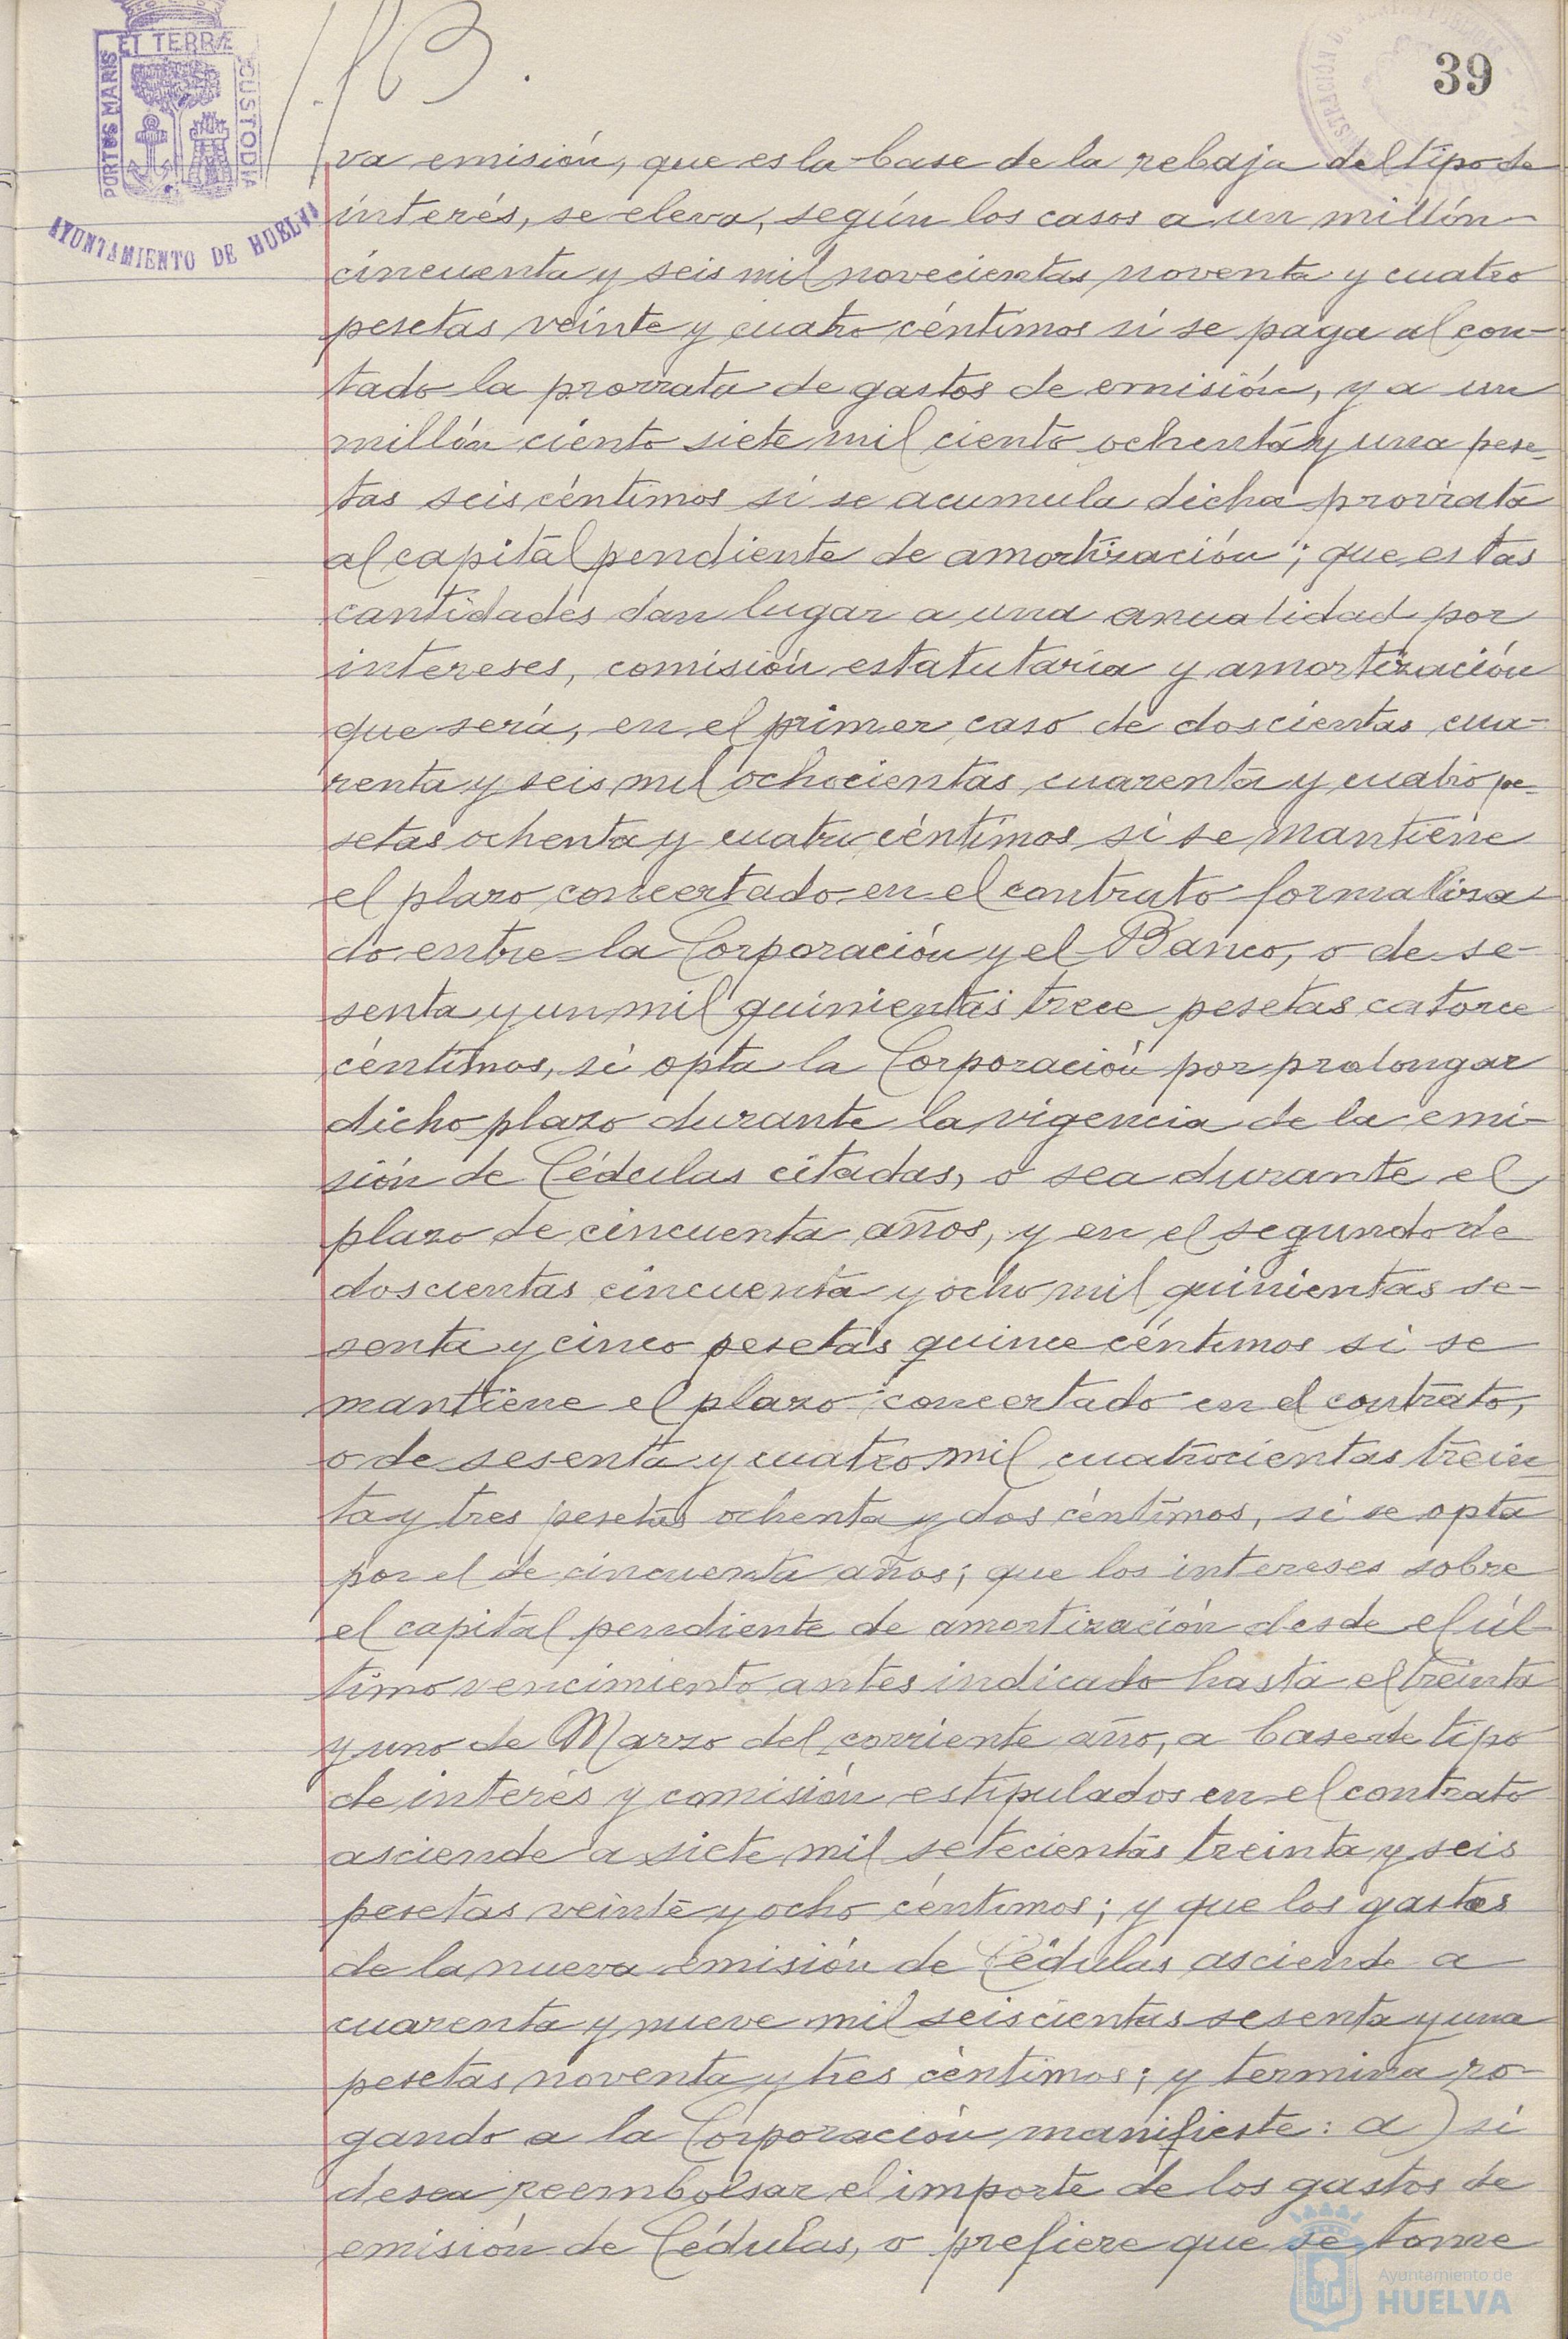 ET TERRÆ
PORTUS MARIS
CUSTODIA
AYUNTAMIENTO DE HUELVA
39
va emisión, que es la base de la rebaja del tipo de
interés, se eleva, según los casos a un millón
cincuenta y seis mil novecientas noventa y cuatro
pesetas veinte y cuatro céntimos si se paga al con-
tado la prorrata de gastos de emisión, y a un
millón ciento siete mil ciento ochenta y una pese-
tas seis céntimos si se acumula dicha prorrata
al capital pendiente de amortización; que estas
cantidades dan lugar a una anualidad por
intereses, comisión estatutaria y amortización
que será, en el primer caso de doscientas cua-
renta y seis mil ochocientas cuarenta y cuatro pe-
setas ochenta y cuatro céntimos si se mantiene
el plazo concertado en el contrato formaliza-
do entre la Corporación y el Banco, o de se-
senta y un mil quinientas trece pesetas catorce
céntimos, si opta la Corporación por prolongar
dicho plazo durante la vigencia de la emi-
sión de Cédulas citadas, o sea durante el
plazo de cincuenta años, y en el segundo de
doscientas cincuenta y ocho mil quinientas se-
senta y cinco pesetas quince céntimos si se
mantiene el plazo concertado en el contrato,
o de sesenta y cuatro mil cuatrocientas trein
ta y tres pesetas ochenta y dos céntimos, si se opta
por el de cincuenta años; que los intereses sobre
el capital pendiente de amortización desde el úl-
timo vencimiento antes indicado hasta el treinta
y uno de Marzo del corriente año, a base de tipo
de interés y comisión estipulados en el contrato
asciende a siete mil setecientas treinta y seis
pesetas veinte y ocho céntimos; y que los gastos
de la nueva emisión de Cédulas asciende a
cuarenta y nueve mil seiscientas sesenta y una
pesetas noventa y tres céntimos; y termina ro-
gando a la Corporación manifieste: a) si
desea reembolsar el importe de los gastos de
emisión de Cédulas, o prefiere que se tome
Ayuntamiento de
HUELVA